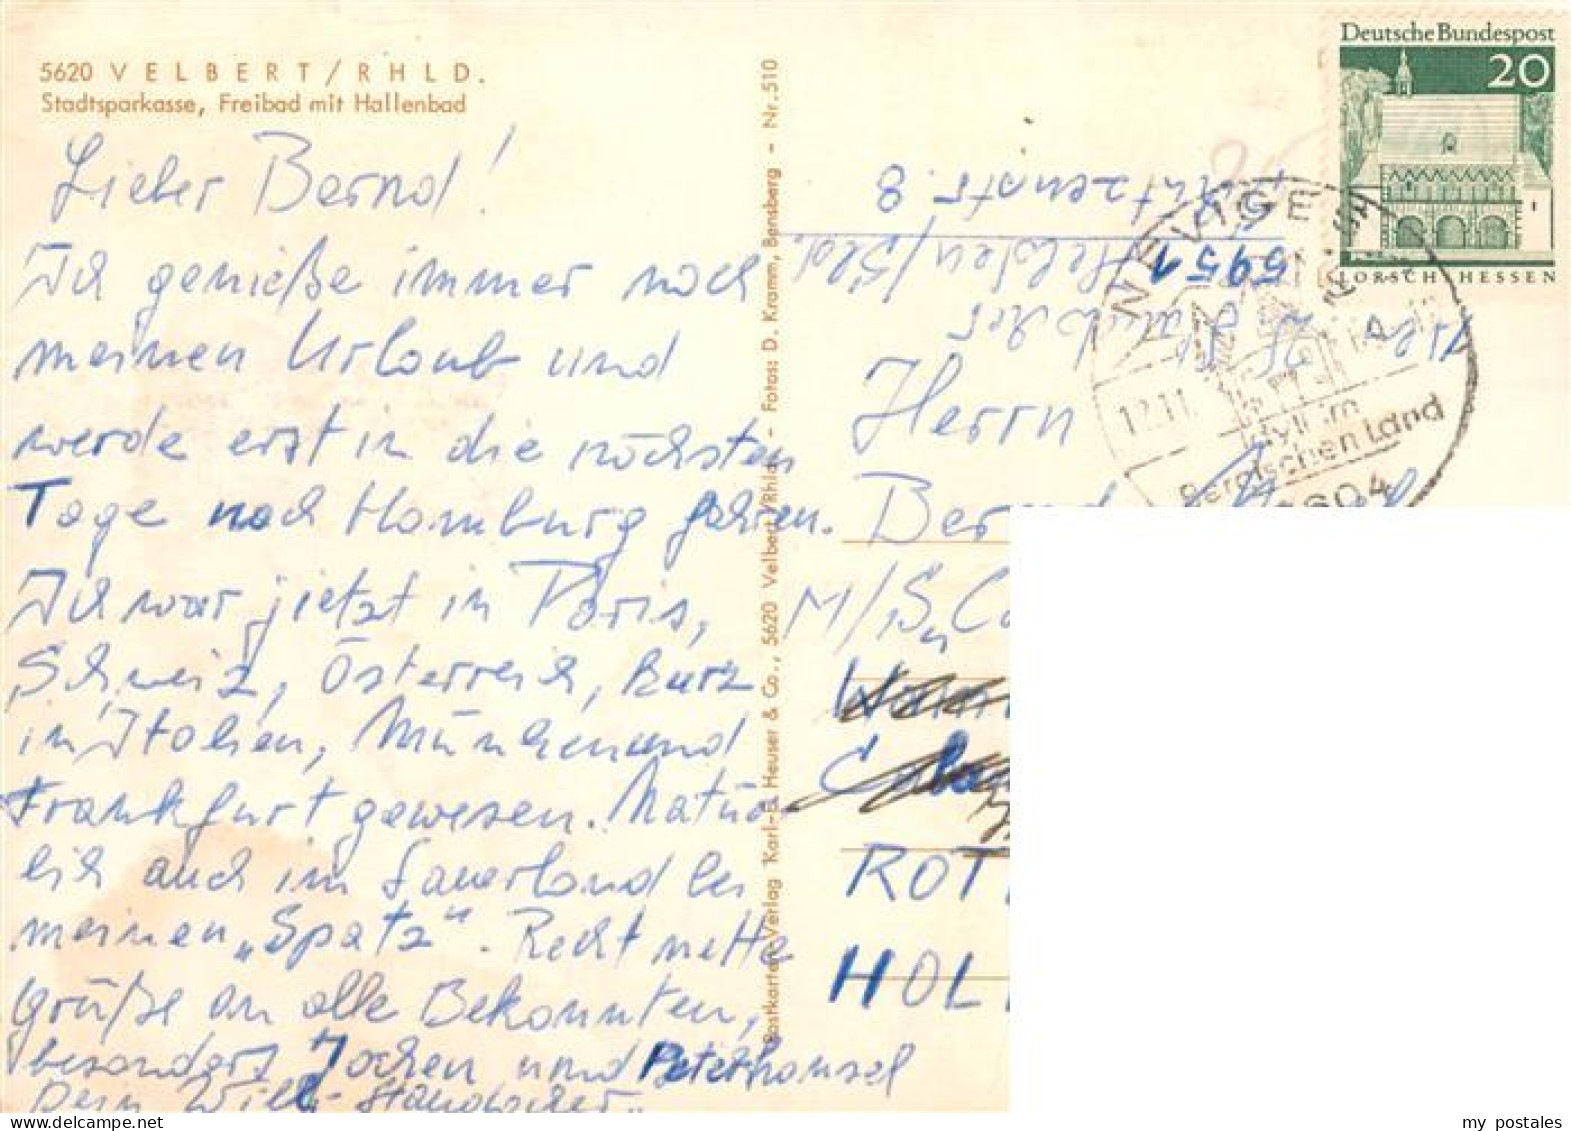 5620 VELBERT/RHLD.
Stadtsparkasse, Freibad mit Hallenbad
Lieber Bernd!
Ich genieße immer noch
meinen Urlaub und
werde erst in die nächsten
Tage nach Homburg fahren.
Ich war jetzt in Paris,
Schweiz, Österreich, kurz
in Italien, München und
Frankfurt gewesen. Natür
lich auch im Sauerland bei
meinen „Spatz". Recht nette
Grüße an alle Bekannten,
besonders Jochen und Peterhansel
Dein Willi
Postkarten-Verlag Karl-E. Heuser & Co., 5620 Velbert/Rhld. - Fotos: D. Kramm, Bensberg - Nr. 510
Deutsche Bundespost
20
LORSCH HESSEN
NEVIGES
12.11.
Idyll im
Bergischen Land
5604
5951
Helden/
8
Herrn
Bernd
M/S
ROT
HOL
my postales